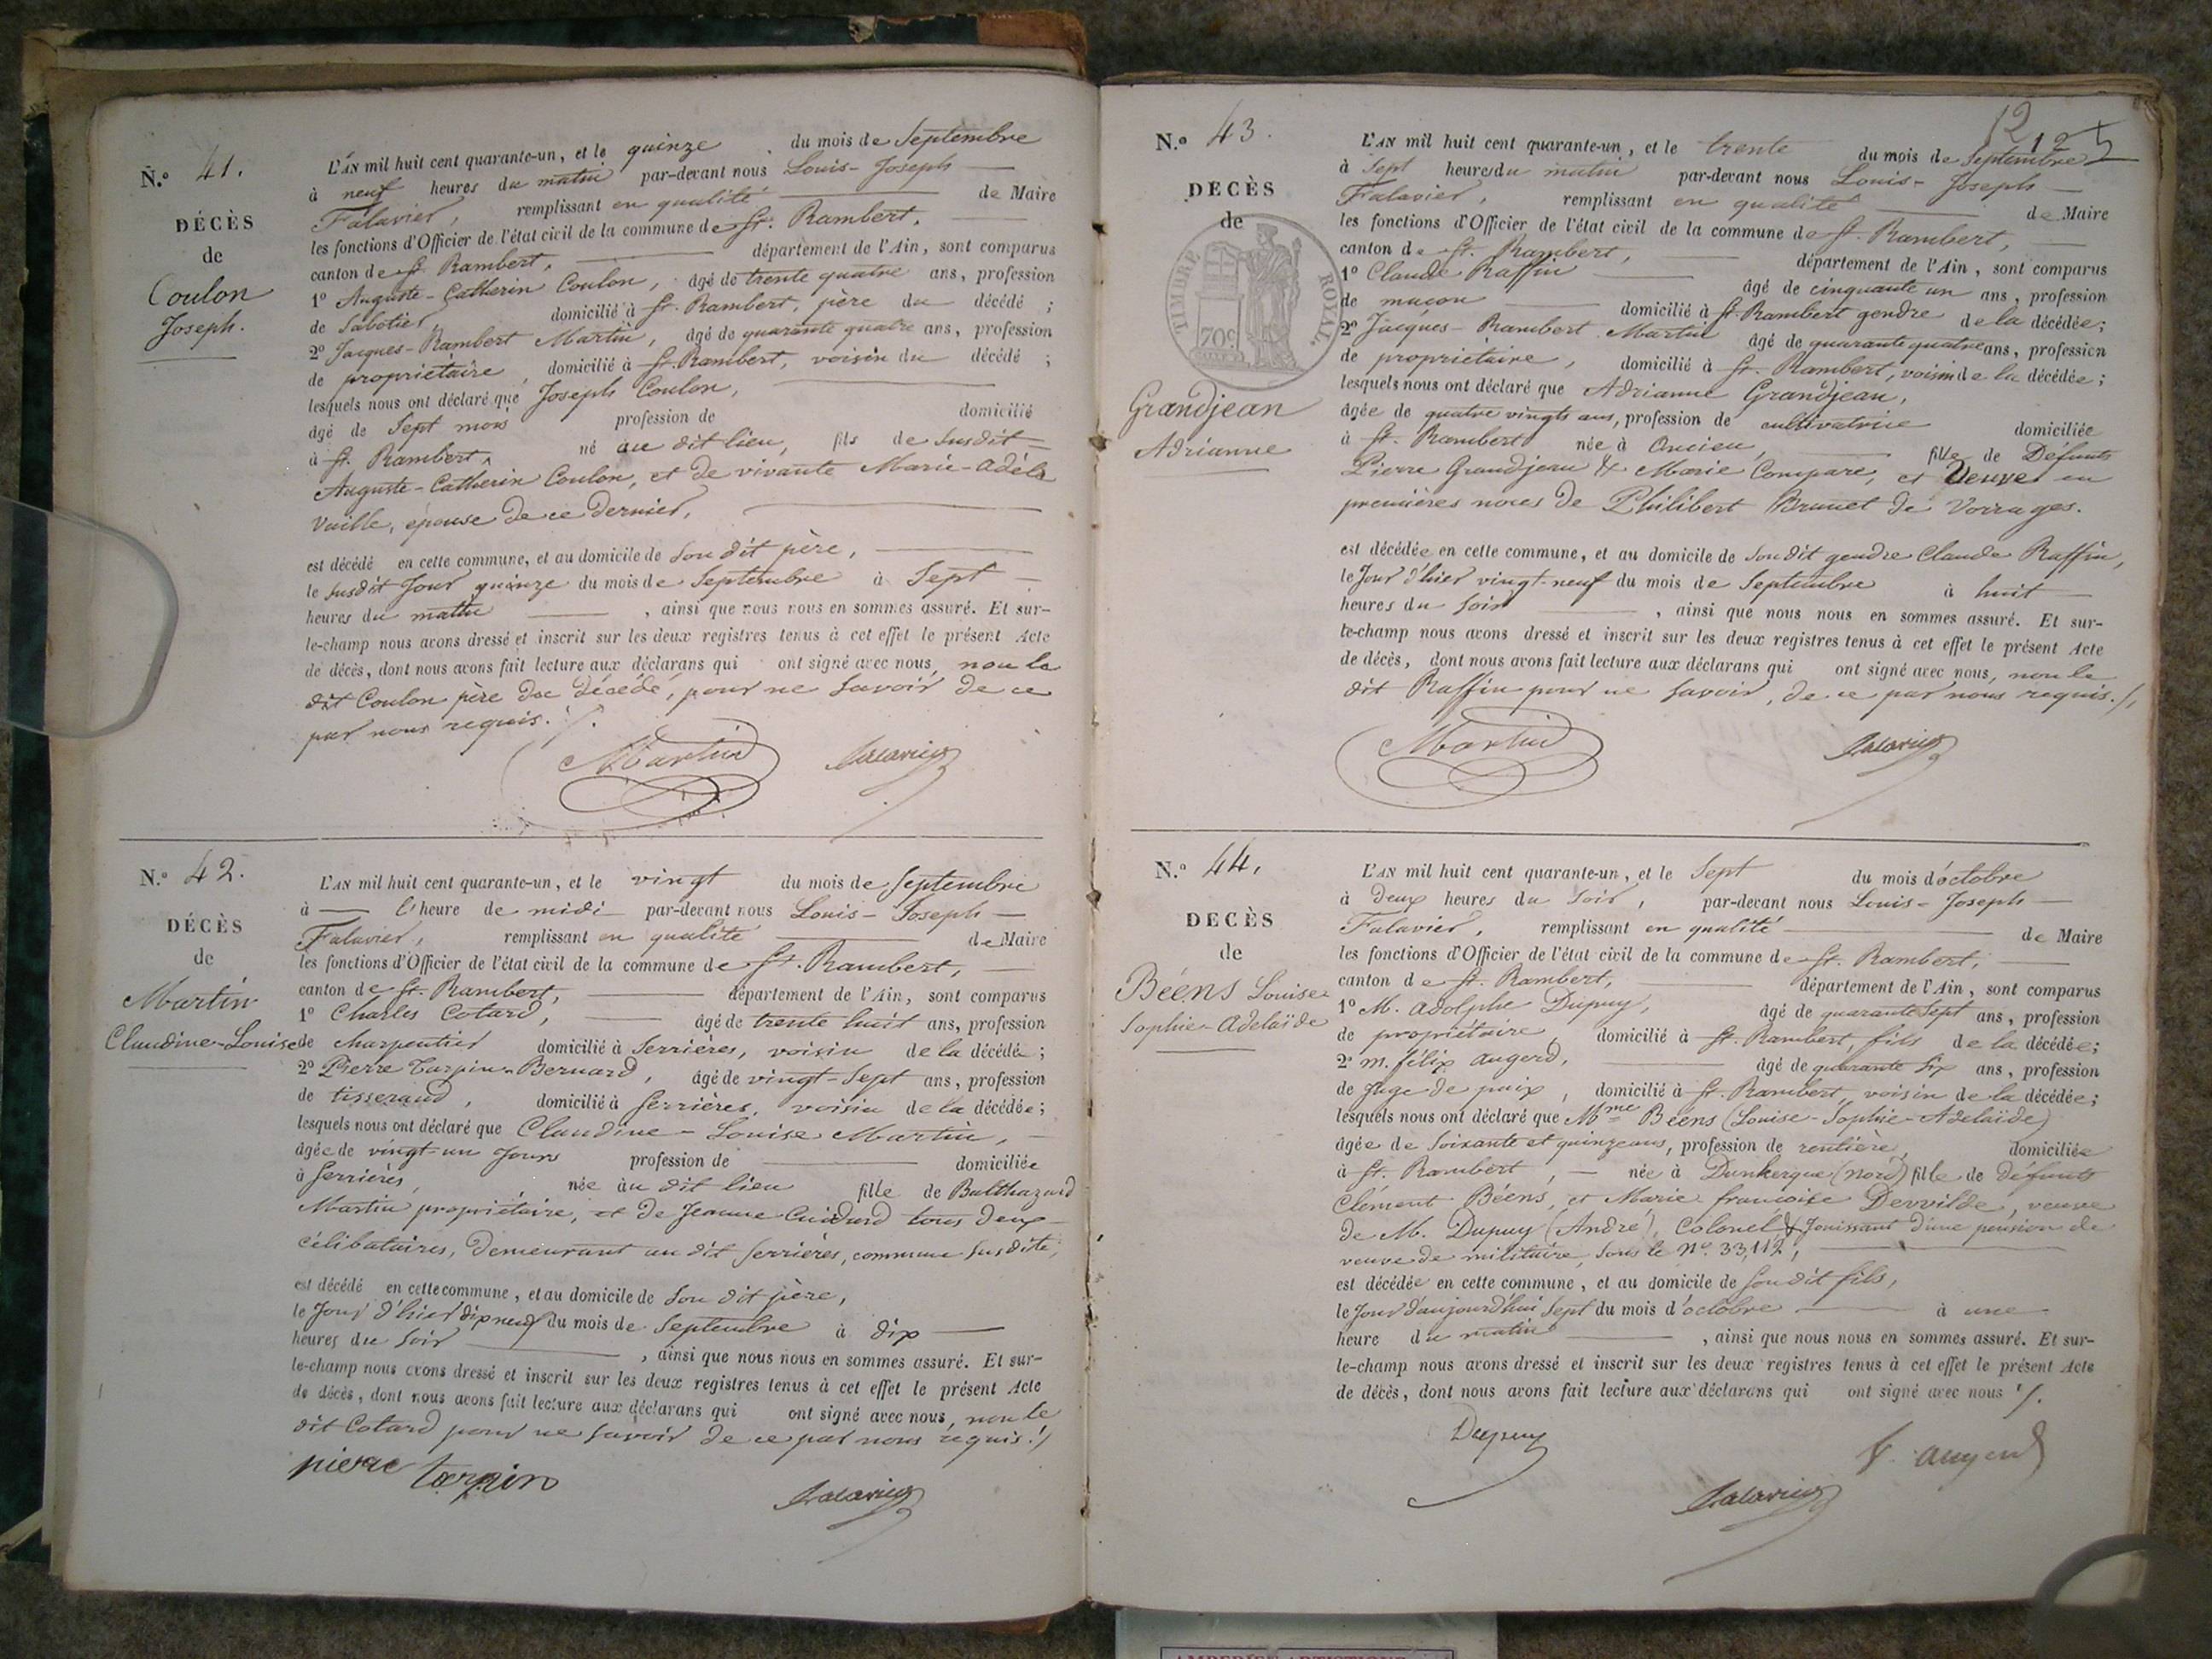 N.º 41.
DÉCÈS
de
Coulon
Joseph.
L'AN mil huit cent quarante-un, et le quinze du mois de Septembre
à neuf heures du matin par-devant nous Louis-Joseph
Falavier, remplissant en qualité de Maire
les fonctions d'Officier de l'état civil de la commune de St. Rambert,
canton de St. Rambert, département de l'Ain, sont comparus
1º Auguste-Catherin Coulon, âgé de trente quatre ans, profession
de Sabotier domicilié à St. Rambert, père du décédé ;
2º Jacques-Rambert Martin, âgé de quarante quatre ans, profession
de propriétaire, domicilié à St. Rambert, voisin du décédé ;
lesquels nous ont déclaré que Joseph Coulon,
âgé de Sept mois profession de domicilié
à St. Rambert, né au dit lieu, fils de Susdit
Auguste-Catherin Coulon, et de vivante Marie-Adèle
Vuille, épouse de ce dernier,
est décédé en cette commune, et au domicile de Son dit père,
le susdit Jour quinze du mois de Septembre à Sept
heures du matin , ainsi que nous nous en sommes assuré. Et sur-
le-champ nous avons dressé et inscrit sur les deux registres tenus à cet effet le présent Acte
de décès, dont nous avons fait lecture aux déclarans qui ont signé avec nous, non le
dit Coulon père du décédé, pour ne Savoir de ce
par nous requis. /.
Martin Falavier
N.º 42.
DÉCÈS
de
Martin
Claudine-Louise
L'AN mil huit cent quarante-un, et le vingt du mois de Septembre
à l'heure de midi par-devant nous Louis-Joseph
Falavier, remplissant en qualité de Maire
les fonctions d'Officier de l'état civil de la commune de St. Rambert,
canton de St. Rambert, département de l'Ain, sont comparus
1º Charles Cotard, âgé de trente huit ans, profession
de charpentier domicilié à Serrières, voisin de la décédée ;
2º Pierre Tarpin-Bernard, âgé de vingt-Sept ans, profession
de tisserand, domicilié à Serrières, voisin de la décédée ;
lesquels nous ont déclaré que Claudine-Louise Martin,
âgée de vingt-un Jours profession de domiciliée
à Serrières, née au dit lieu fille de Balthazard
Martin propriétaire, et de Jeanne Cuidard tous deux
célibataires, demeurant au dit Serrières, commune Susdite,
est décédé en cette commune, et au domicile de Son dit père,
le Jour d'hier dix neuf du mois de Septembre à dix
heures du Soir , ainsi que nous nous en sommes assuré. Et sur-
le-champ nous avons dressé et inscrit sur les deux registres tenus à cet effet le présent Acte
de décès, dont nous avons fait lecture aux déclarans qui ont signé avec nous, non le
dit Cotard pour ne Savoir de ce par nous requis. /
pierre tarpin
Falavier
12
N.º 43.
DÉCÈS
de
TIMBRE ROYAL.
70c
Grandjean
Adrianne
L'AN mil huit cent quarante-un, et le trente du mois de Septembre
à Sept heures du matin par-devant nous Louis-Joseph
Falavier, remplissant en qualité de Maire
les fonctions d'Officier de l'état civil de la commune de St. Rambert,
canton de St. Rambert, département de l'Ain, sont comparus
1º Claude Raffin âgé de cinquante un ans, profession
de maçon domicilié à St. Rambert gendre de la décédée ;
2º Jacques-Rambert Martin âgé de quarante quatre ans, profession
de propriétaire, domicilié à St. Rambert, voisin de la décédée ;
lesquels nous ont déclaré que Adrianne Grandjean,
âgée de quatre vingts ans, profession de cultivatrice domiciliée
à St. Rambert née à Oncieu, fille de Défunts
Pierre Grandjean & Marie Compare, et Veuve en
premières noces de Philibert Brunet de Vorrages.
est décédée en cette commune, et au domicile de Son dit gendre Claude Raffin,
le Jour d'hier vingt-neuf du mois de Septembre à huit
heures du Soir , ainsi que nous nous en sommes assuré. Et sur-
le-champ nous avons dressé et inscrit sur les deux registres tenus à cet effet le présent Acte
de décès, dont nous avons fait lecture aux déclarans qui ont signé avec nous, non le
dit Raffin pour ne Savoir, de ce par nous requis. /.
Martin Falavier
N.º 44.
DÉCÈS
de
Béens Louise
Sophie-Adelaïde
L'AN mil huit cent quarante-un, et le Sept du mois d'octobre
à Deux heures du Soir, par-devant nous Louis-Joseph
Falavier, remplissant en qualité de Maire
les fonctions d'Officier de l'état civil de la commune de St. Rambert,
canton de St. Rambert, département de l'Ain, sont comparus
1º M. Adolphe Dupuy, âgé de quarante Sept ans, profession
de propriétaire, domicilié à St. Rambert, fils de la décédée ;
2º M. félix Augerd, âgé de quarante Six ans, profession
de Juge de paix, domicilié à St. Rambert, voisin de la décédée ;
lesquels nous ont déclaré que Mme Béens (Louise-Sophie-Adelaïde)
âgée de Soixante et quinze ans, profession de rentière, domiciliée
à St. Rambert, née à Dunkerque (Nord) fille de défunts
Clément Béens, et Marie françoise Dervilde, veuve
de M. Dupuy (André), Colonel & Jouissant d'une pension de
veuve de militaire, Sous le Nº. 33,112,
est décédée en cette commune, et au domicile de Son dit fils,
le Jour d'aujourd'hui Sept du mois d'octobre à une
heure du matin , ainsi que nous nous en sommes assuré. Et sur-
le-champ nous avons dressé et inscrit sur les deux registres tenus à cet effet le présent Acte
de décès, dont nous avons fait lecture aux déclarans qui ont signé avec nous /.
Dupuy
f. augerd
Falavier